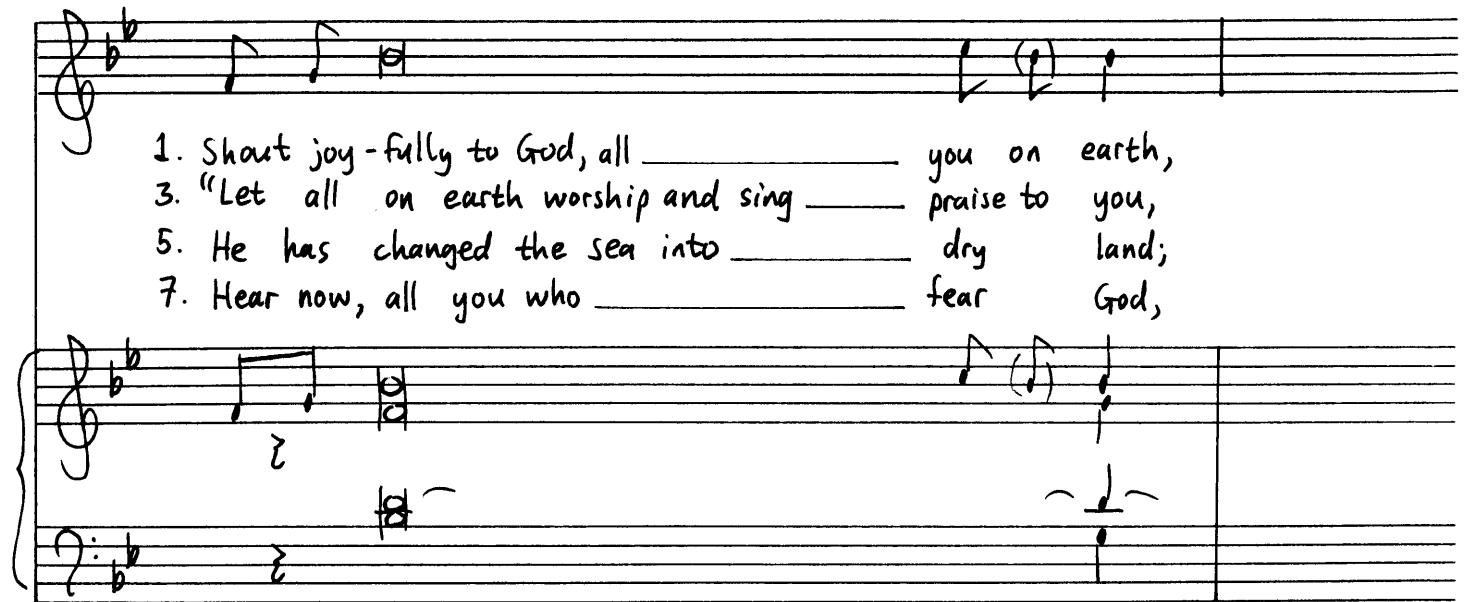 1. Shout joy-fully to God, all ____ you on earth,
3. "Let all on earth worship and sing ____ praise to you,
5. He has changed the sea into ____ dry land;
7. Hear now, all you who ____ fear God,